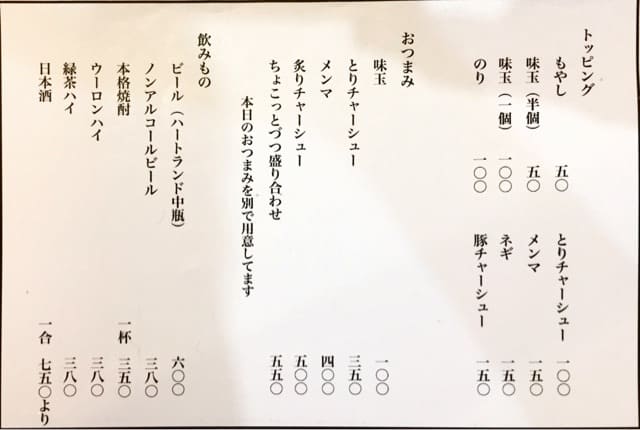 トッピング
もやし 五〇
味玉（半個） 五〇
味玉（一個） 一〇〇
のり 一〇〇
とりチャーシュー 一〇〇
メンマ 一五〇
ネギ 一五〇
豚チャーシュー 一五〇
おつまみ
味玉 一〇〇
とりチャーシュー 三五〇
メンマ 四〇〇
炙りチャーシュー 五〇〇
ちょこっとづつ盛り合わせ 五五〇
本日のおつまみを別で用意してます
飲みもの
ビール（ハートランド中瓶） 六〇〇
ノンアルコールビール 三八〇
本格焼酎 一杯 三五〇
ウーロンハイ 三八〇
緑茶ハイ 三八〇
日本酒 一合 七五〇より